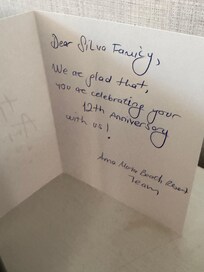 Dear Silva Family,
We are glad that,
you are celebrating your
12th Anniversary
with us!
Beach
Team